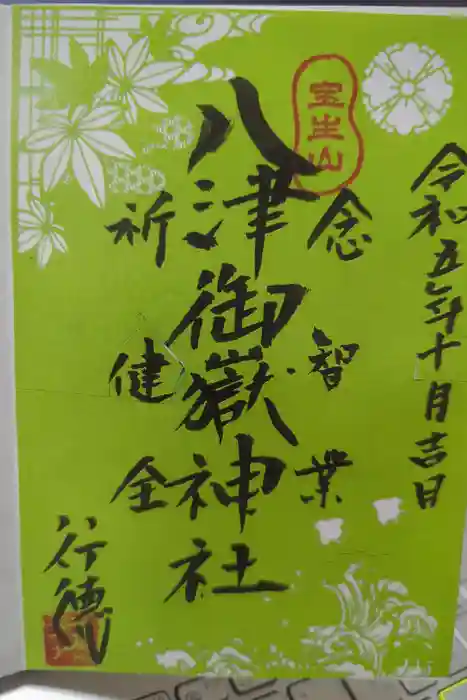 令和五年十月吉日
宝生山
念智業
八津御嶽神社
祈健全
行徳